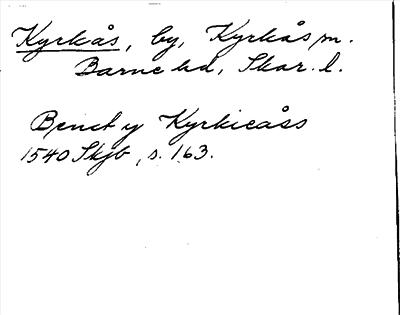 Kyrkås, by, Kyrkås sn.
Barne hd, Skar. l.
Benct y Kyrkieåss
1540 Skjb, s. 163.